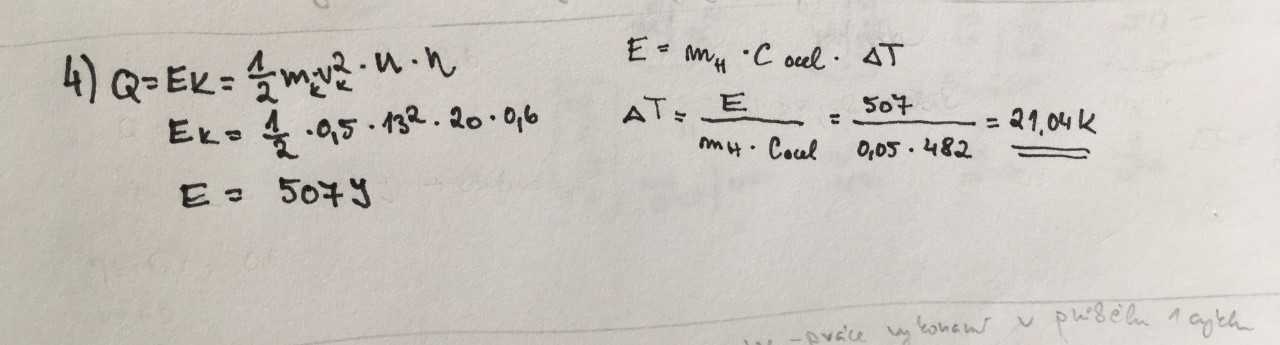 4) Q = EK = 1/2 mₖvₖ² · n · η
Eₖ = 1/2 · 0,5 · 13² · 20 · 0,6
E = 507 J
E = m_H · C ocel · ΔT
ΔT = E / (m_H · Cocel) = 507 / (0,05 · 482) = 21,04 K
- práce vykonaná v průběhu 1 cyklu